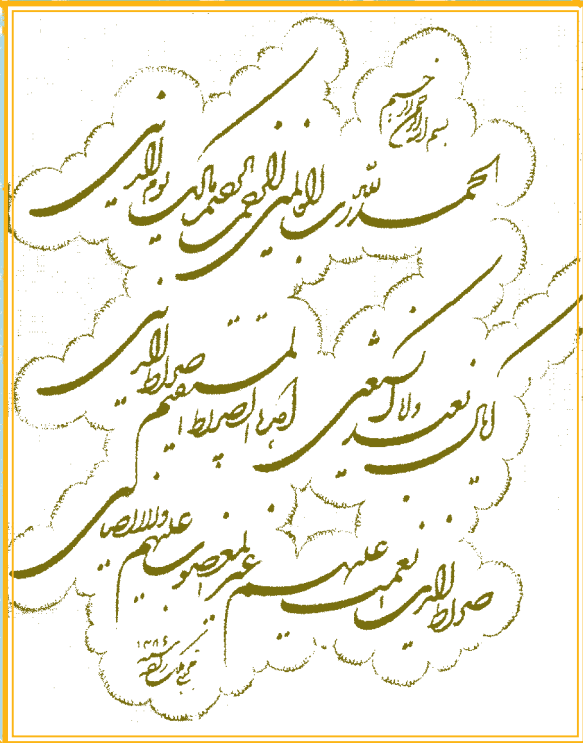 بسم الله الرحمن الرحیم
الحمد لله رب العالمین الرحمن الرحیم مالک یوم الدین
ایاک نعبد و ایاک نستعین اهدنا الصراط المستقیم صراط الذین
صراط الذین انعمت علیهم غیر المغضوب علیهم ولا الضالین